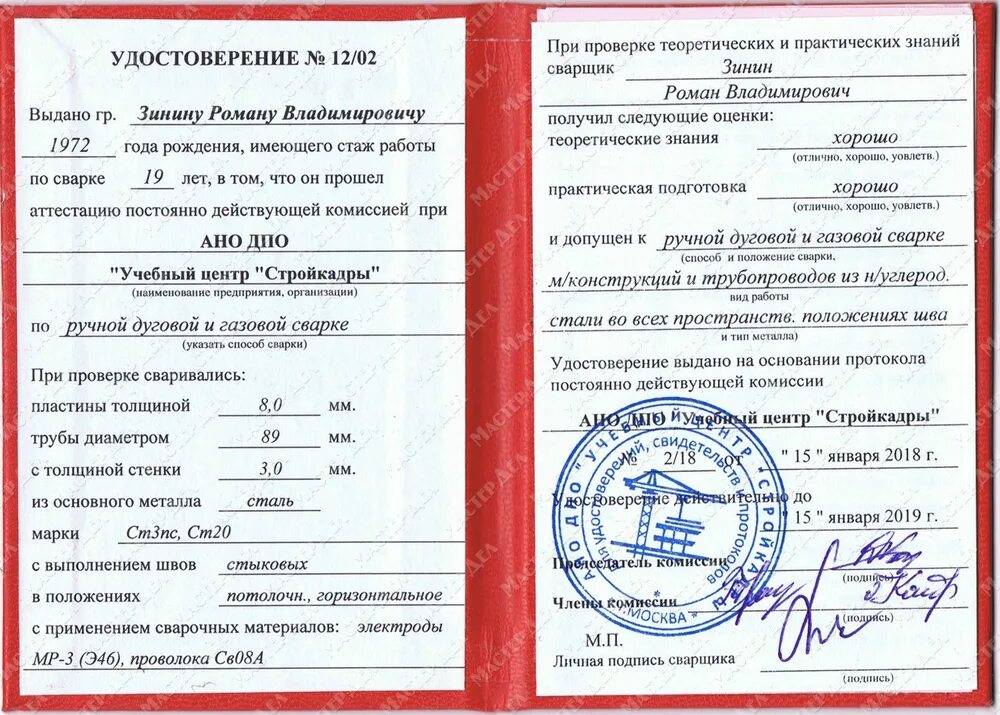 УДОСТОВЕРЕНИЕ № 12/02
Выдано гр. Зинину Роману Владимировичу
1972 года рождения, имеющего стаж работы
по сварке 19 лет, в том, что он прошел
аттестацию постоянно действующей комиссией при
АНО ДПО
"Учебный центр "Стройкадры"
(наименование предприятия, организации)
по ручной дуговой и газовой сварке
(указать способ сварки)
При проверке сваривались:
пластины толщиной 8,0 мм.
трубы диаметром 89 мм.
с толщиной стенки 3,0 мм.
из основного металла сталь
марки Ст3пс, Ст20
с выполнением швов стыковых
в положениях потолочн., горизонтальное
с применением сварочных материалов: электроды
МР-3 (Э46), проволока Св08А
При проверке теоретических и практических знаний
сварщик Зинин
Роман Владимирович
получил следующие оценки:
теоретические знания хорошо
(отлично, хорошо, уовлетв.)
практическая подготовка хорошо
(отлично, хорошо, уовлетв.)
и допущен к ручной дуговой и газовой сварке
(способ и положение сварки,
м/конструкций и трубопроводов из н/углерод.
вид работы
стали во всех пространств. положениях шва
и тип металла)
Удостоверение выдано на основании протокола
постоянно действующей комиссии
АНО ДПО "Учебный центр "Стройкадры"
№ 2/18 от " 15 " января 2018 г.
Удостоверение действительно до
" 15 " января 2019 г.
Председатель комиссии
(подпись)
Члены комиссии
(подпись)
М.П.
Личная подпись сварщика
(подпись)
АНО ДПО "УЧЕБНЫЙ ЦЕНТР "СТРОЙКАДРЫ"
* г.МОСКВА *
для удостоверений, свидетельств и протоколов
МАСТЕР ДЕЛ